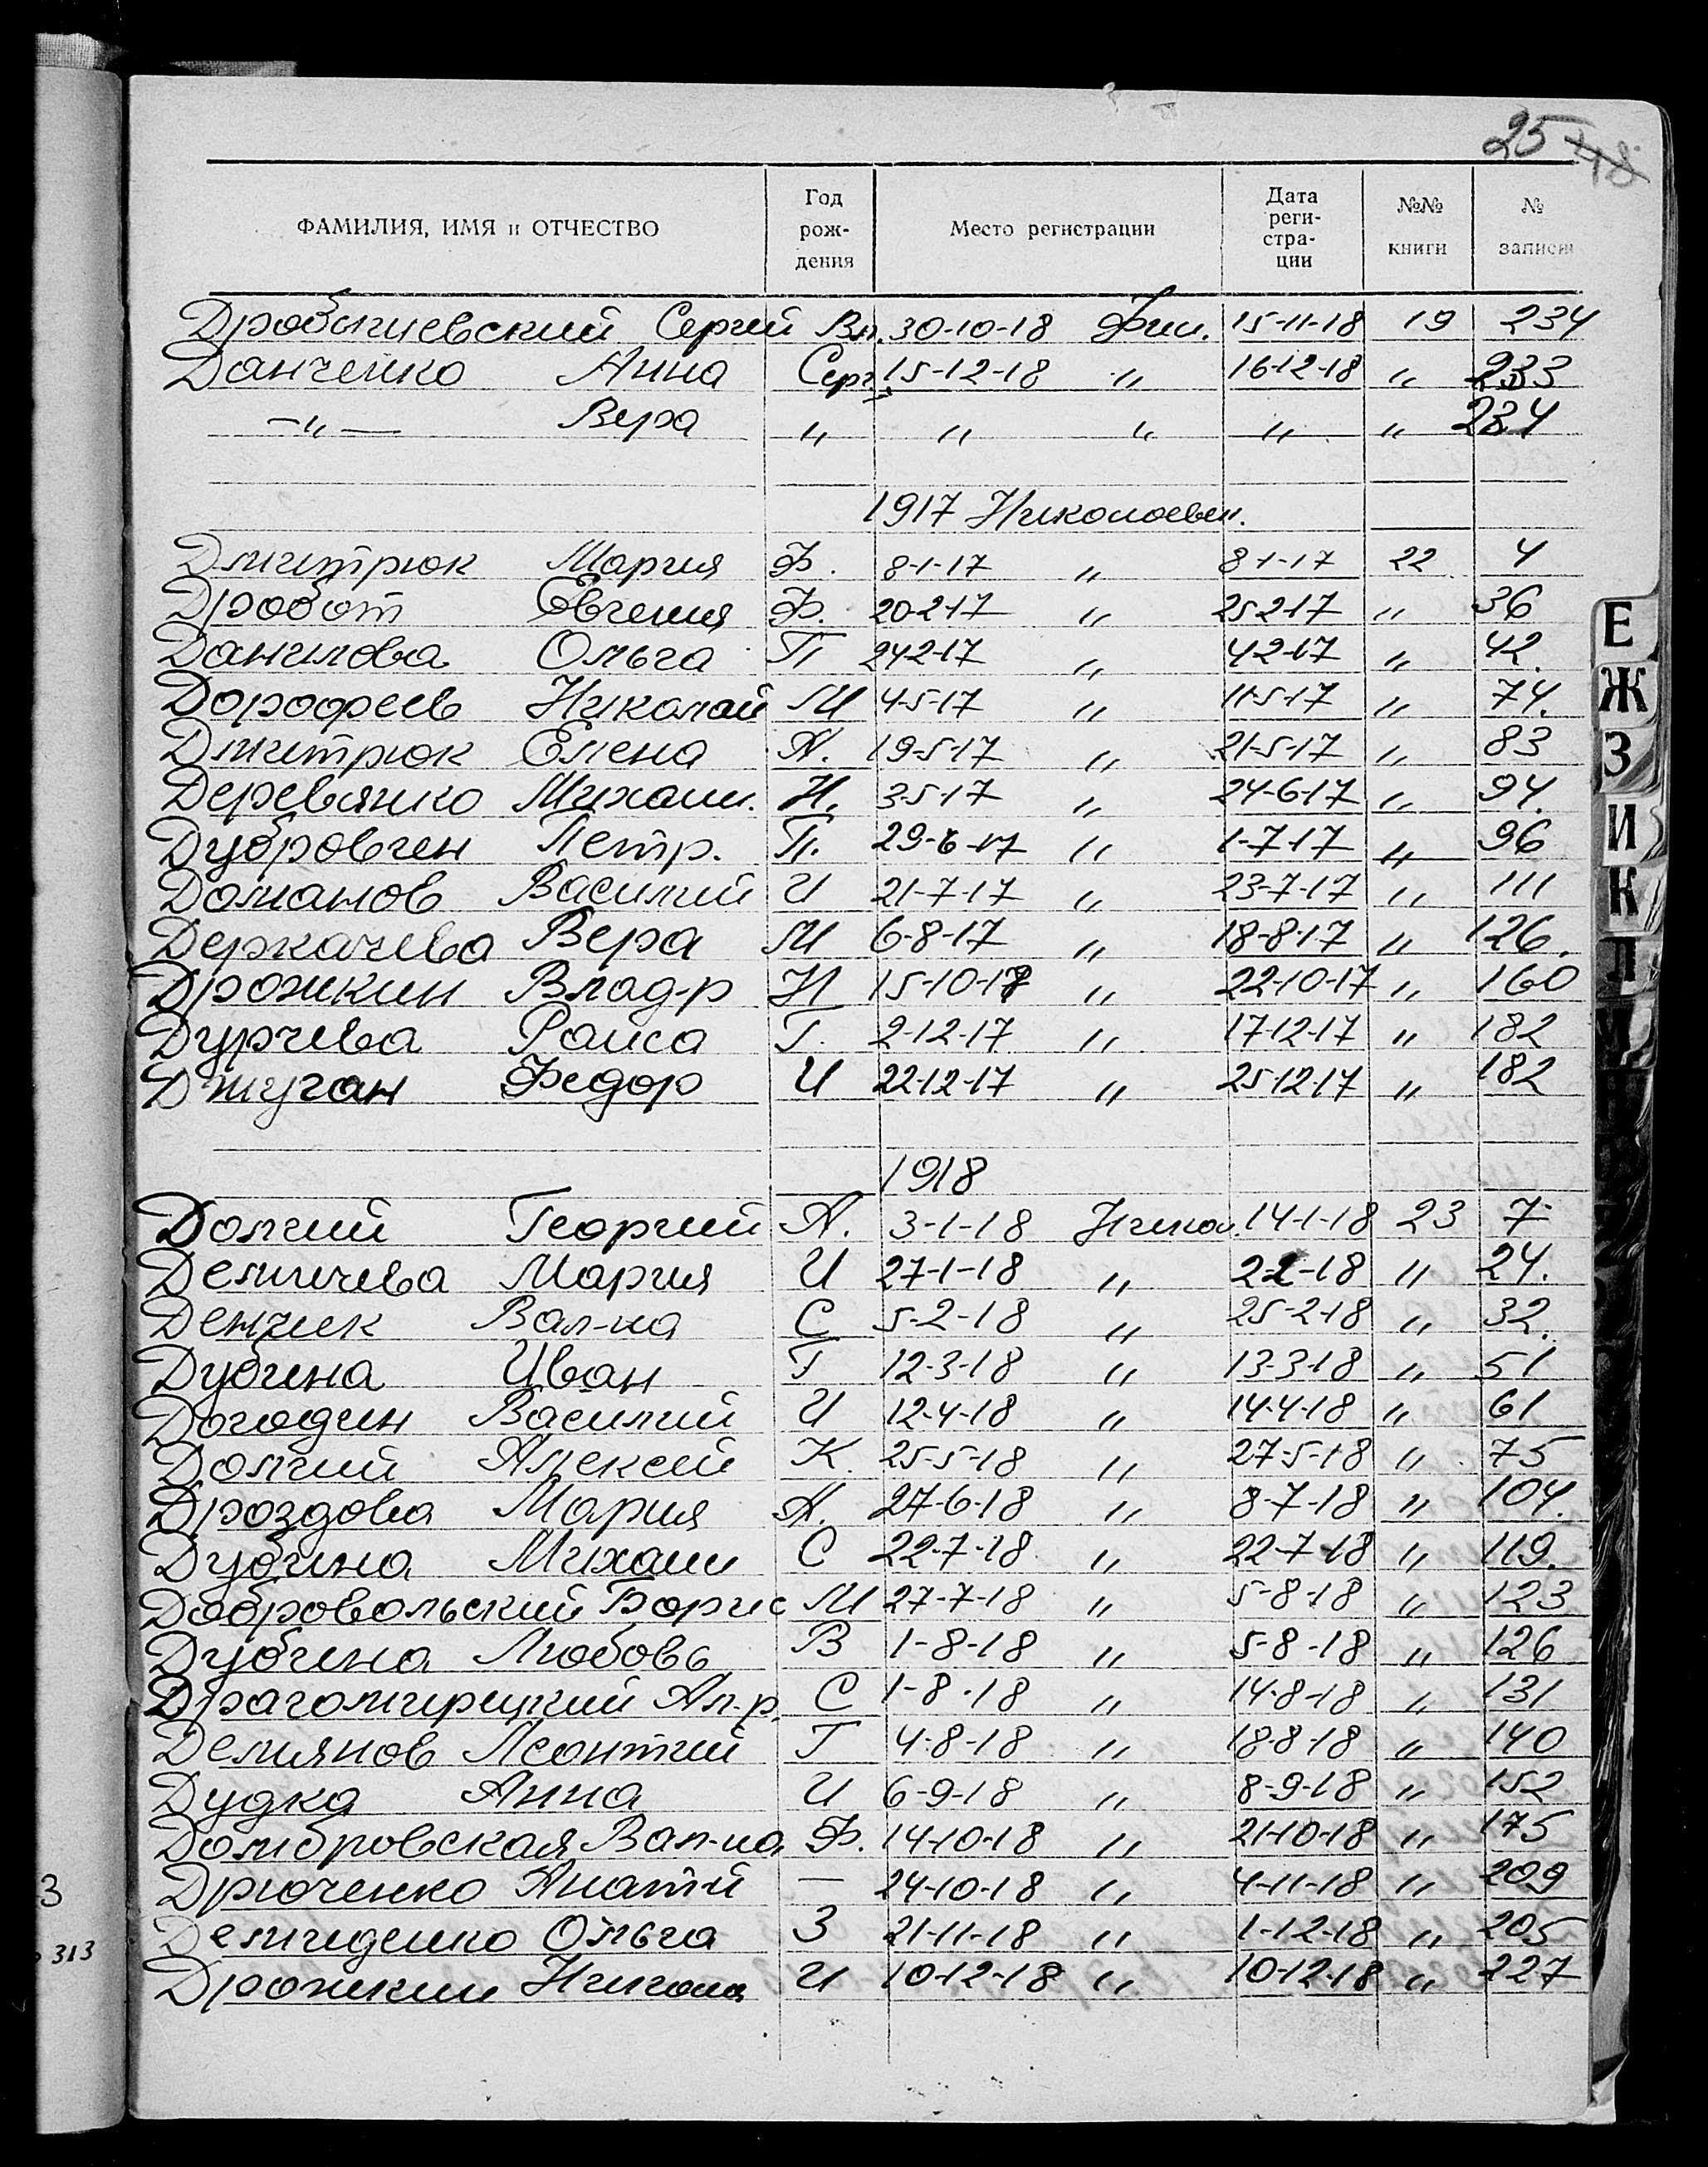 25 48
ФАМИЛИЯ, ИМЯ и ОТЧЕСТВО Год рождения Место регистрации Дата регистрации №№ книги № записи
Сергей Вл. 30-10-18 15-11-18 19 234
Данченко Анна Серг. 15-12-18 " 16-12-18 " 233
-"- Вера " " " " " 234
1917 Николаевск.
Дмитрюк Мария Ф. 8-1-17 " 8-1-17 22 4
Дробот Евгения Ф. 20-2-17 " 25-2-17 " 36
Данилова Ольга П 24-2-17 " 4-2-17 " 42.
Дорофеев Николай М 4-5-17 " 11-5-17 " 74.
Дмитрюк Елена А. 19-5-17 " 21-5-17 " 83
Деревянко Михаил. Н. 3-5-17 " 24-6-17 " 94.
Дубровген Петр. П. 29-6-17 " 1-7-17 " 96
Доманов Василий И 21-7-17 " 23-7-17 " 111
Деркачева Вера М 6-8-17 " 18-8-17 " 126.
Дрожкин Влад-р Н 15-10-17 " 22-10-17 " 160
Дурчева Раиса Г. 2-12-17 " 17-12-17 " 182
Джуган Федор И 22-12-17 " 25-12-17 " 182
1918
Долгий Георгий А. 3-1-18 Никол. 14-1-18 23 7
Демичева Мария И 27-1-18 " 2-2-18 " 24.
Денчик Вал-на С 5-2-18 " 25-2-18 " 32.
Дубина Иван Г 12-3-18 " 13-3-18 " 51
Догодин Василий И 12-4-18 " 14-4-18 " 61
Долгий Алексей К. 25-5-18 " 27-5-18 " 75
Дроздова Мария А. 27-6-18 " 8-7-18 " 104.
Дубина Михаил С 22-7-18 " 22-7-18 " 119.
Добровольский Борис М 27-7-18 " 5-8-18 " 123
Дубина Любовь В 1-8-18 " 5-8-18 " 126
Драгомирецкий Ал-р. С 1-8-18 " 14-8-18 " 131
Демянов Леонтий Г 4-8-18 " 18-8-18 " 140
Дудка Анна И 6-9-18 " 8-9-18 " 152
Домбровская Вал-на Ф. 14-10-18 " 21-10-18 " 175
Дрюченко Анатй — 24-10-18 " 4-11-18 " 209
Демиденко Ольга З 21-11-18 " 1-12-18 " 205
Дрожкин И 10-12-18 " 10-12-18 " 227
Е
Ж
З
И
К
Л
3
313